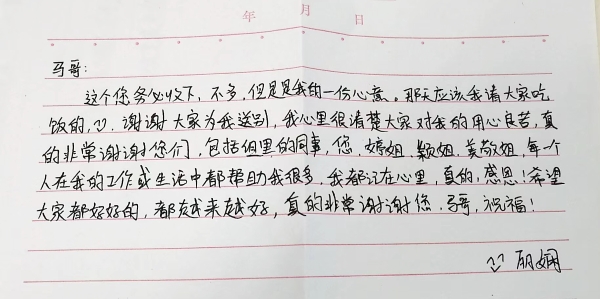 年 月 日
马哥：
这个您务必收下，不多，但是是我的一份心意。那天应该我请大家吃
饭的，谢谢大家为我送别，我心里很清楚大家对我的用心良苦，真
的非常谢谢您们，包括组里的同事，您，婷姐，颖姐，美敬姐，每一个
人在我的工作或生活中都帮助我很多，我都记在心里，真的，感恩！希望
大家都好好的，都越来越好，真的非常谢谢您，马哥，祝福！
丽娴